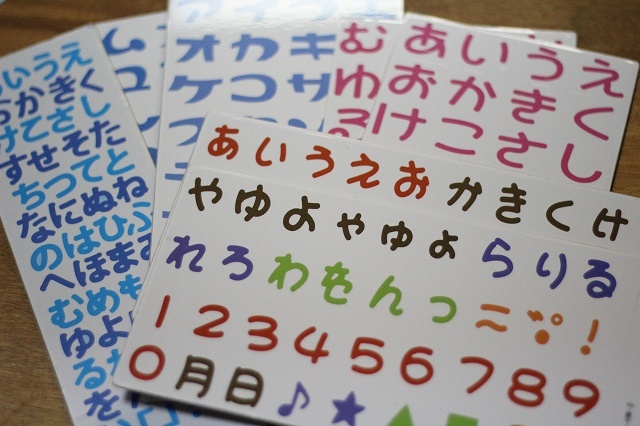 いうえ
おかきく
けこさし
すせそた
ちつてと
なにぬね
のはひふ
へほまみ
むめも
ゆよ
る
を
ム
ユ
アイウエ
オカキ
ケコサ
む
ゆ
る
あいうえ
おかきく
けこさし
あいうえおかきくけ
やゆよゃゅょらりる
れろわをんっー〜゛゜!
123456789
0月日♪★▲■